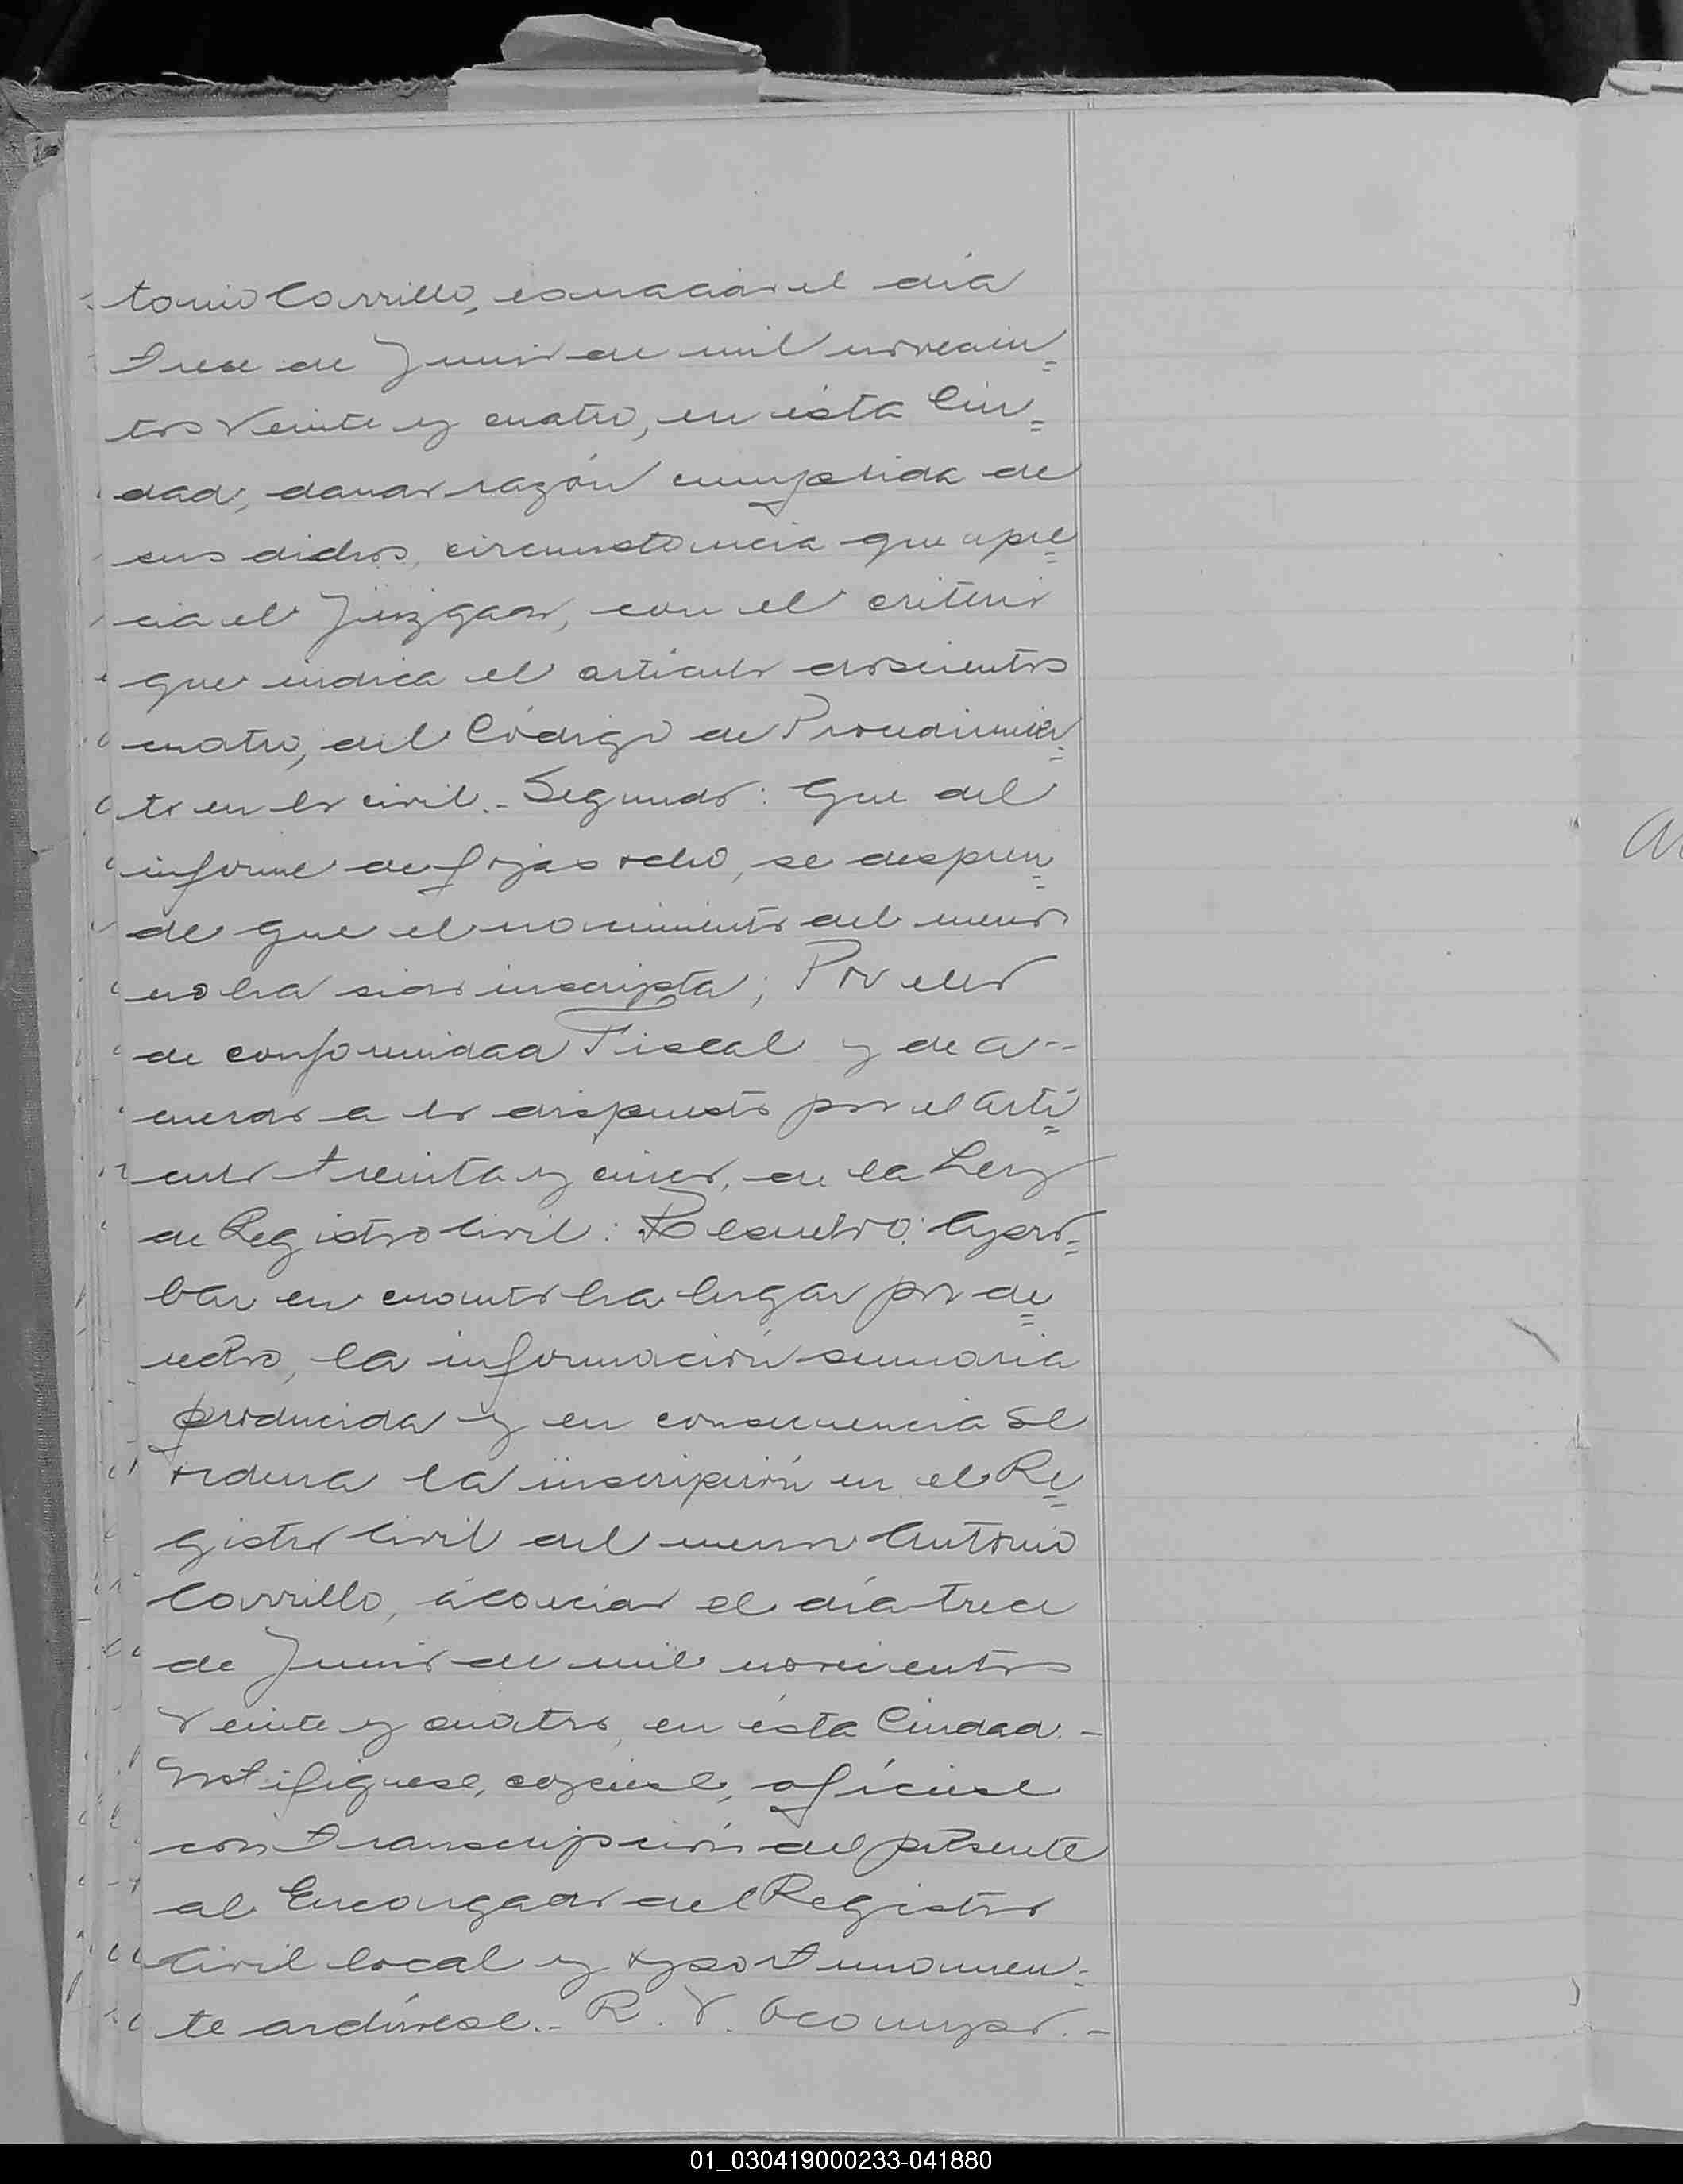 tonio Carrillo, es nacido el día
trece de Junio de mil novecien=
tos veinte y cuatro, en ésta Ciu=
dad, dando razón cumplida de
sus dichos, circunstancia que apre=
cia el Juzgado, con el criterio
que indica el artículo doscientos
cuatro, del Código de Procedimien=
to en lo civil.- Segundo: Que del
informe de fojas ocho, se despren=
de que el nacimiento del menor
no ha sido inscripta; Por ello
de conformidad Fiscal y de a--
cuerdo a lo dispuesto por el artí=
culo treinta y cinco, de la Ley
de Registro Civil: Resuelvo: Apro=
bar en cuanto ha lugar por de=
recho, la información sumaria
producida y en consecuencia se
ordena la inscripción en el Re=
gistro Civil del menor Antonio
Carrillo, acaecido el día trece
de Junio de mil novecientos
veinte y cuatro, en ésta Ciudad.-
Notifíquese, cópiese, ofíciese
con transcripción del presente
al Encargado del Registro
Civil local y oportunamen=
te archívese.- R. V. Ocampo.-
01_030419000233-041880